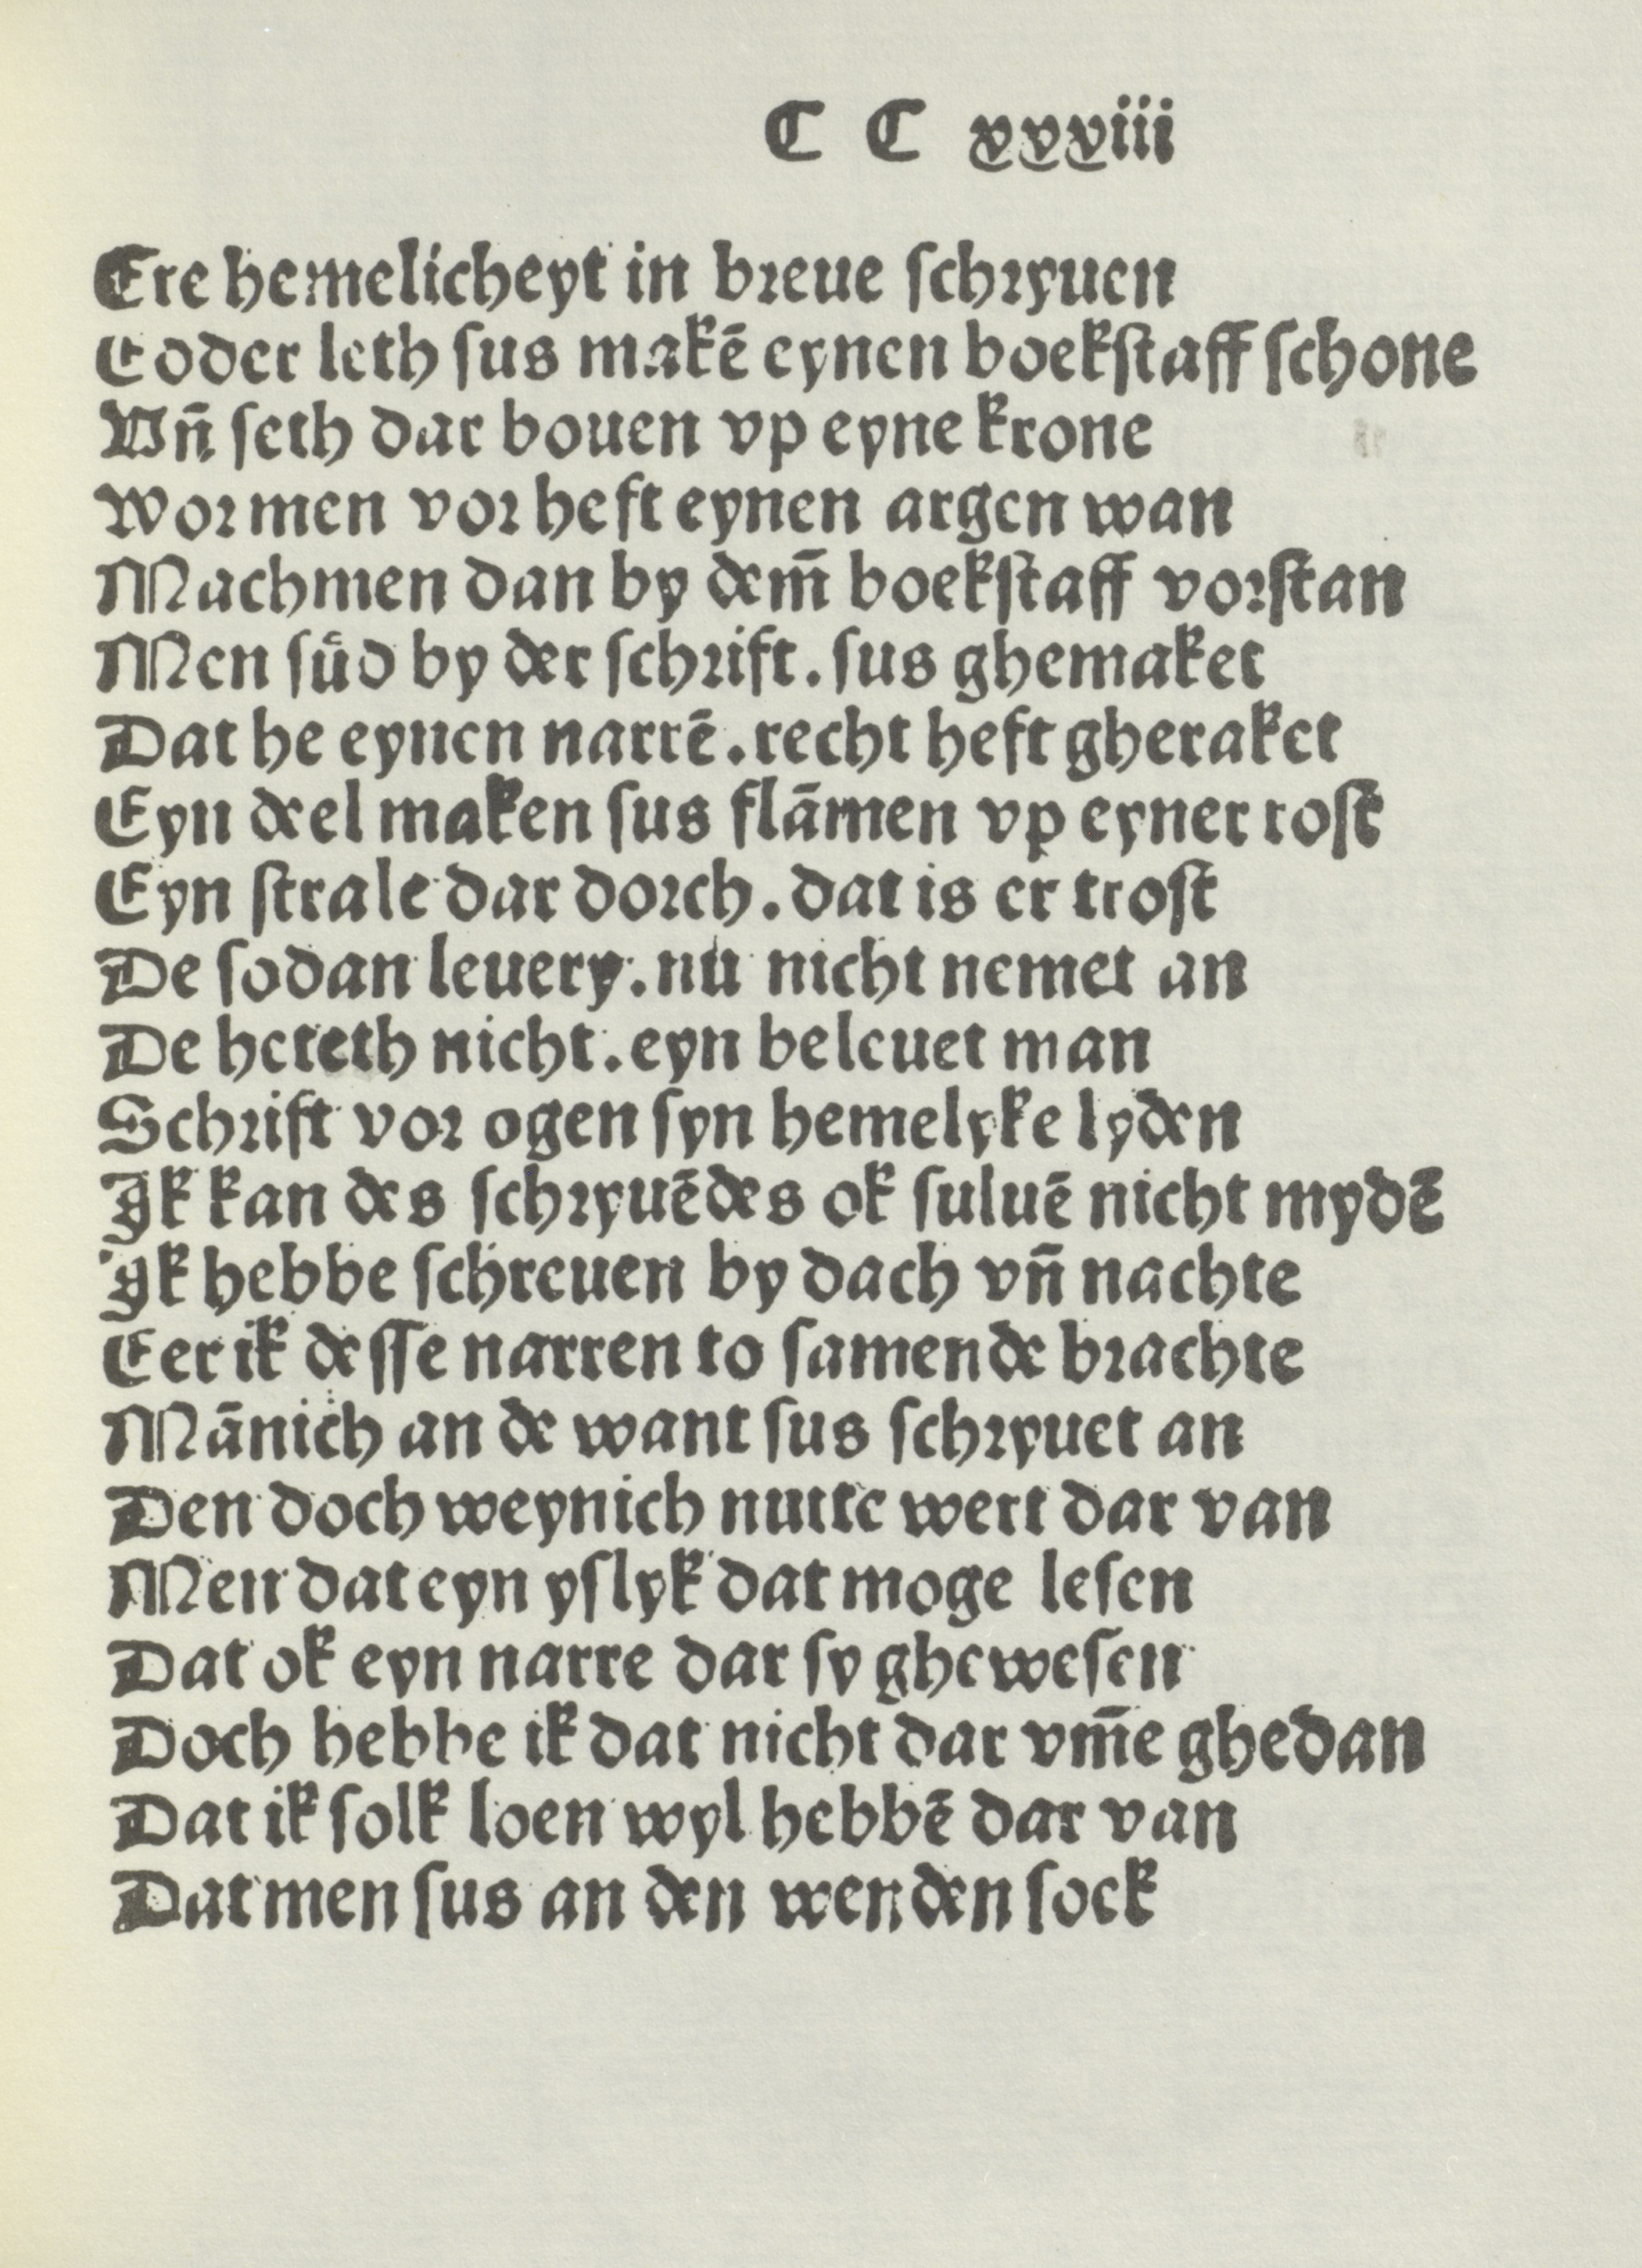 C C xxxviii
Ere hemelicheyt in breue ſchryuen
Eoder leth ſus makē eynen boekſtaff ſchone
Vñ ſeth dar bouen vp eyne krone
Wor men vor heft eynen argen wan
Machmen dan by dem̄ boekſtaff vorſtan
Men ſůd by der ſchrift. ſus ghemaket
Dat he eynen narrē. recht heft gheraket
Eyn deel maken ſus flāmen vp eyner roſt
Eyn ſtrale dar dorch. dat is er troſt
De ſodan leuery. nu nicht nemet an
De heteth nicht. eyn beleuet man
Schrift vor ogen ſyn hemelyke lyden
Ik kan des ſchryuēdes ok ſuluē nicht mydē
Ik hebbe ſchreuen by dach vñ nachte
Eer ik deſſe narren to ſamende brachte
Mānich an de want ſus ſchryuet an
Den doch weynich nutte wert dar van
Men dat eyn yſlyk dat moge leſen
Dat ok eyn narre dar ſy gheweſen
Doch hebbe ik dat nicht dar vm̄e ghedan
Dat ik ſolk loen wyl hebbē dar van
Dat men ſus an den wenden ſock